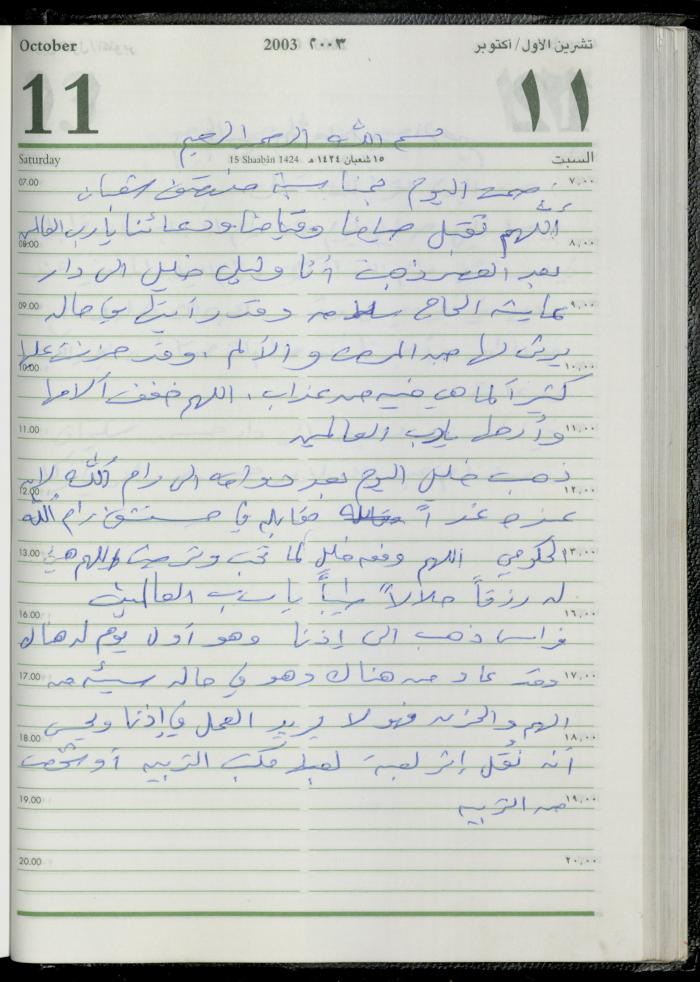 October 2003 ٢٠٠٣ تشرين الأول/أكتوبر
11 ١١
بسم الله الرحمن الرحيم
Saturday 15 Shaabân 1424 ١٥ شعبان ١٤٢٤ هـ السبت
07.00 صمت اليوم بمناسبة منتصف شعبان ٧,٠٠
اللهم تقبل صيامنا وقيامنا ودعائنا يا رب العالمين
08.00 ٨,٠٠
بعد العصر ذهبت أنا وليلى خليل الى دار
09.00 عايشه الحاج سلامه وقد رأيتها في حاله ٩,٠٠
يرثى لها من المرض والألم ، وقد حزنت عليها
10.00 ١٠,٠٠
كثيراً لما هي فيه من عذاب ، اللهم خفف آلامها
11.00 وأرحمها يا رب العالمين ١١,٠٠
ذهب خليل اليوم بعد دوامه الى رام الله لان
12.00 ١٢,٠٠
عنده غداً مقابله في مستشفى رام الله
13.00 الحكومي اللهم وفقه خليل لما تحب وترضى اللهم هيئ ١٣,٠٠
له رزقاً حلالاً طيباً يا رب العالمين
16.00 ١٦,٠٠
فراس ذهب الى إذنا وهو أول يوم له هناك
17.00 وقد عاد من هناك وهو في حاله سيئه من ١٧,٠٠
الهم والحزن فهو لا يريد العمل في إذنا ويحس
18.00 ١٨,٠٠
أنه نُقل إثر لعبة لعبها مكتب التربيه أو شخص
19.00 من التربيه ١٩,٠٠
20.00 ٢٠,٠٠